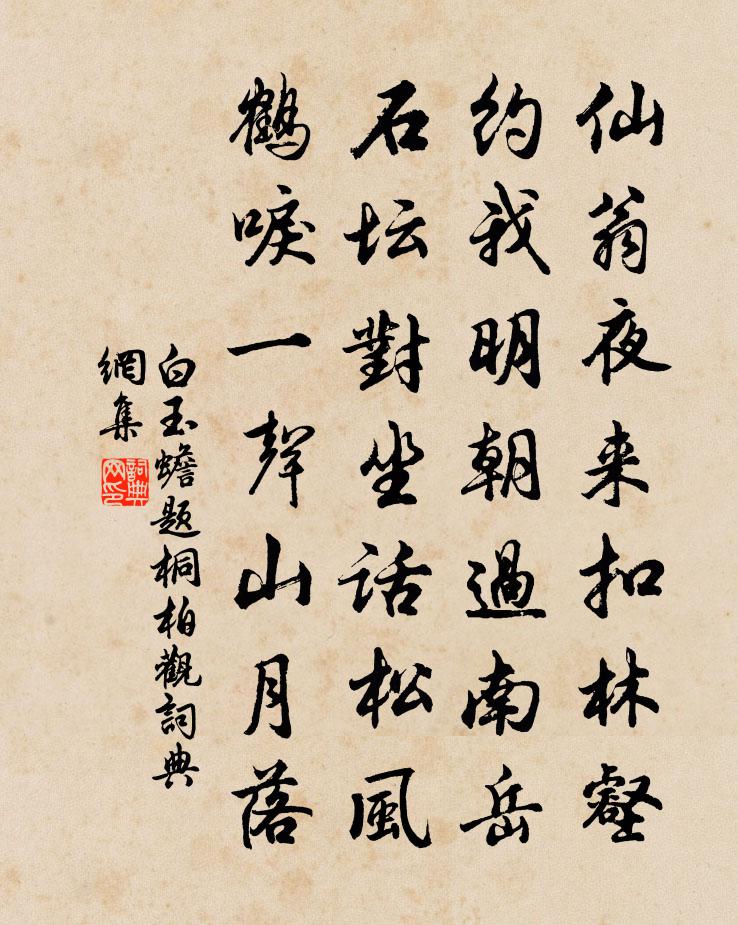 仙翁夜来扣林壑
约我明朝過南岳
石坛對坐話松風
鶴唳一聲山月落
白玉蟾题桐柏觀詞典
網集
詞典网印